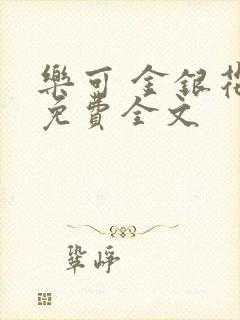 樂可 金銀花
免費全文
鞏崢